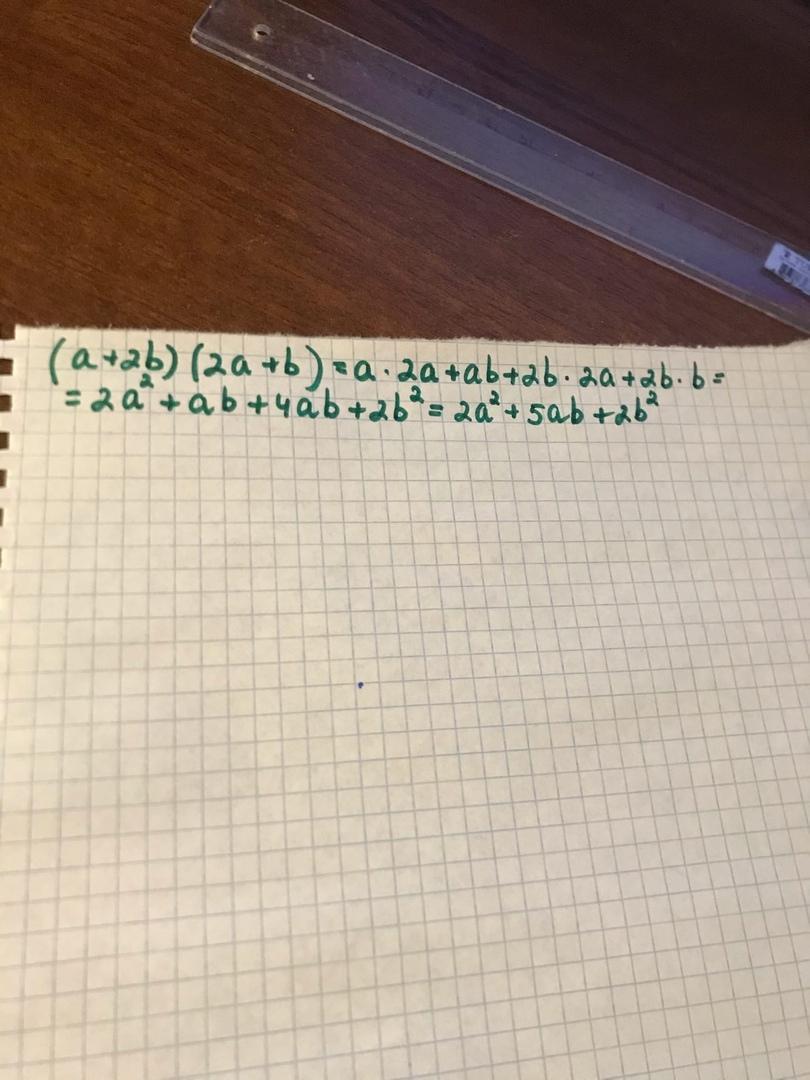 (a+2b)(2a+b)=a·2a+ab+2b·2a+2b·b=
=2a²+ab+4ab+2b²=2a²+5ab+2b²